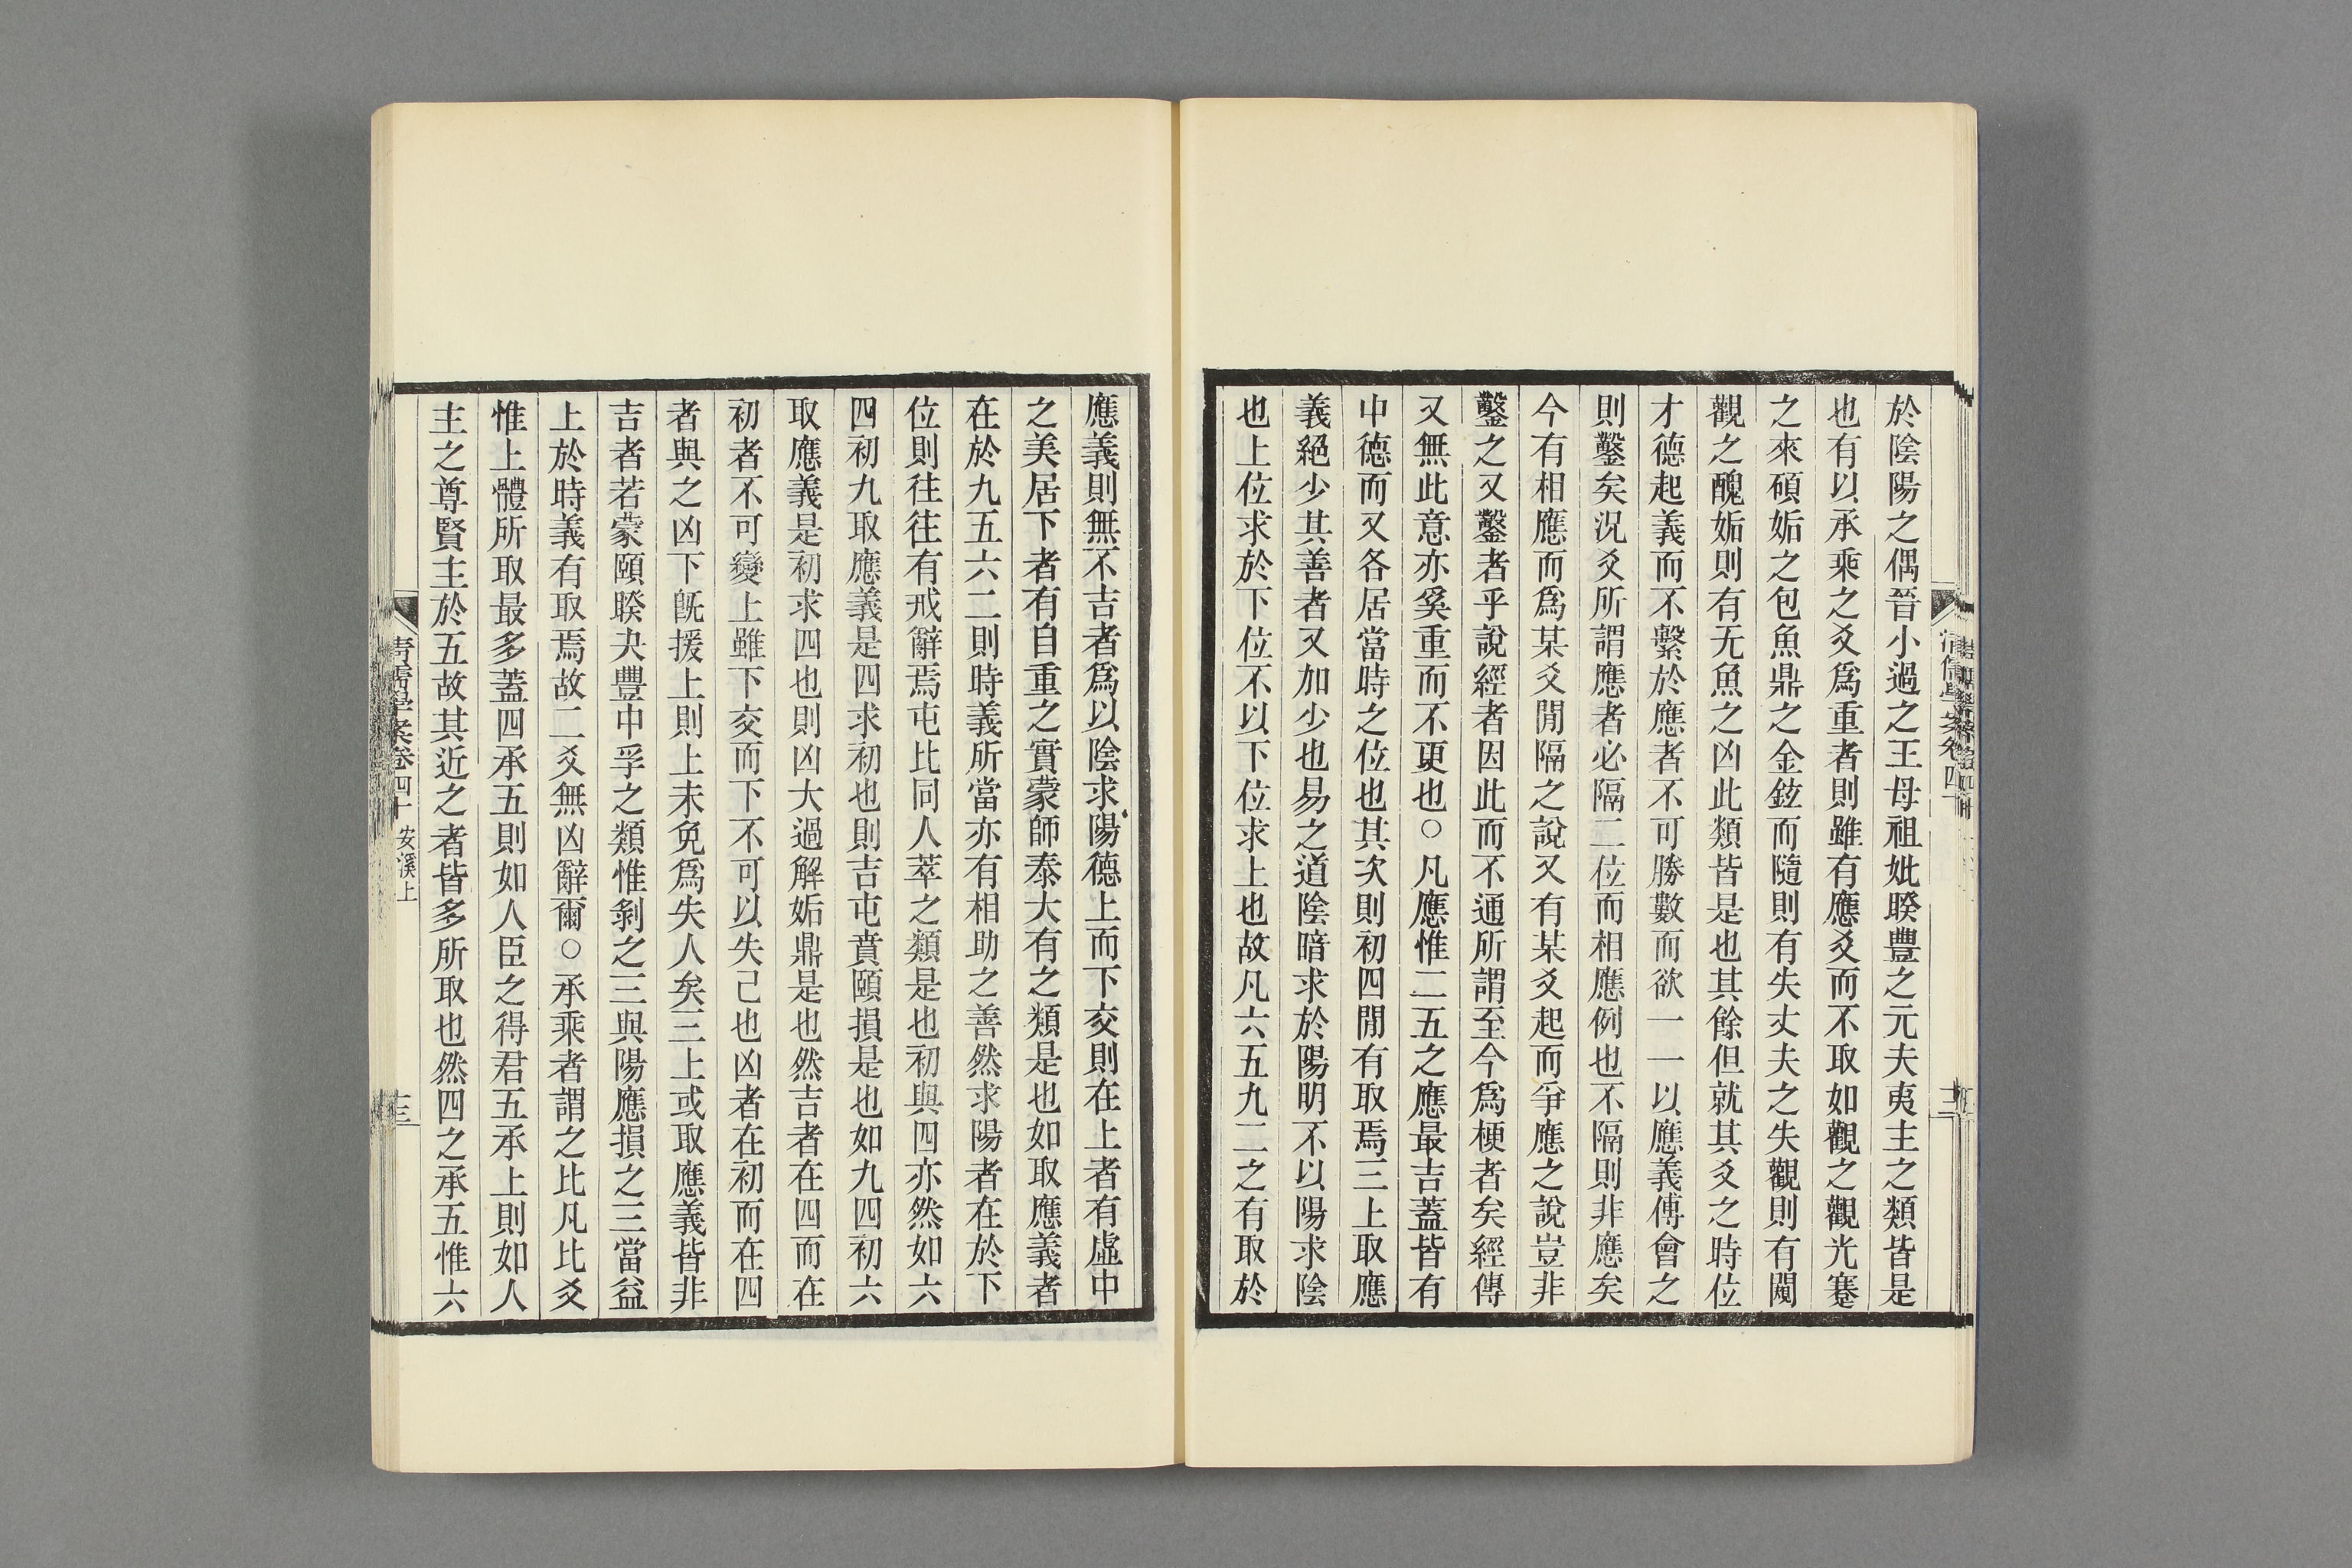 於陰陽之偶晉小過之王母祖妣睽豐之元夫夷主之類皆是
也有以承乘之爻爲重者則雖有應爻而不取如觀之觀光蹇
之來碩姤之包魚鼎之金鉉而隨則有失丈夫之失觀則有闚
觀之醜姤則有无魚之凶此類皆是也其餘但就其爻之時位
才德起義而不繫於應者不可勝數而欲一一以應義傅會之
則鑿矣況爻所謂應者必隔二位而相應例也不隔則非應矣
今有相應而爲某爻閒隔之說又有某爻起而爭應之說豈非
鑿之又鑿者乎說經者因此而不通所謂至今爲梗者矣經傳
又無此意亦奚重而不更也○凡應惟二五之應最吉蓋皆有
中德而又各居當時之位也其次則初四閒有取焉三上取應
義絕少其善者又加少也易之道陰暗求於陽明不以陽求陰
也上位求於下位不以下位求上也故凡六五九二之有取於
應義則無不吉者爲以陰求陽德上而下交則在上者有虛中
之美居下者有自重之實蒙師泰大有之類是也如取應義者
在於九五六二則時義所當亦有相助之善然求陽者在於下
位則往往有戒辭焉屯比同人萃之類是也初與四亦然如六
四初九取應義是四求初也則吉屯賁頤損是也如九四初六
取應義是初求四也則凶大過解姤鼎是也然吉者在四而在
初者不可變上雖下交而下不可以失己也凶者在初而在四
者與之凶下旣援上則上未免爲失人矣三上或取應義皆非
吉者若蒙頤睽夬豐中孚之類惟剝之三與陽應損之三當益
上於時義有取焉故二爻無凶辭爾○承乘者謂之比凡比爻
惟上體所取最多蓋四承五則如人臣之得君五承上則如人
主之尊賢主於五故其近之者皆多所取也然四之承五惟六
清儒學案卷四十
安溪上
十三